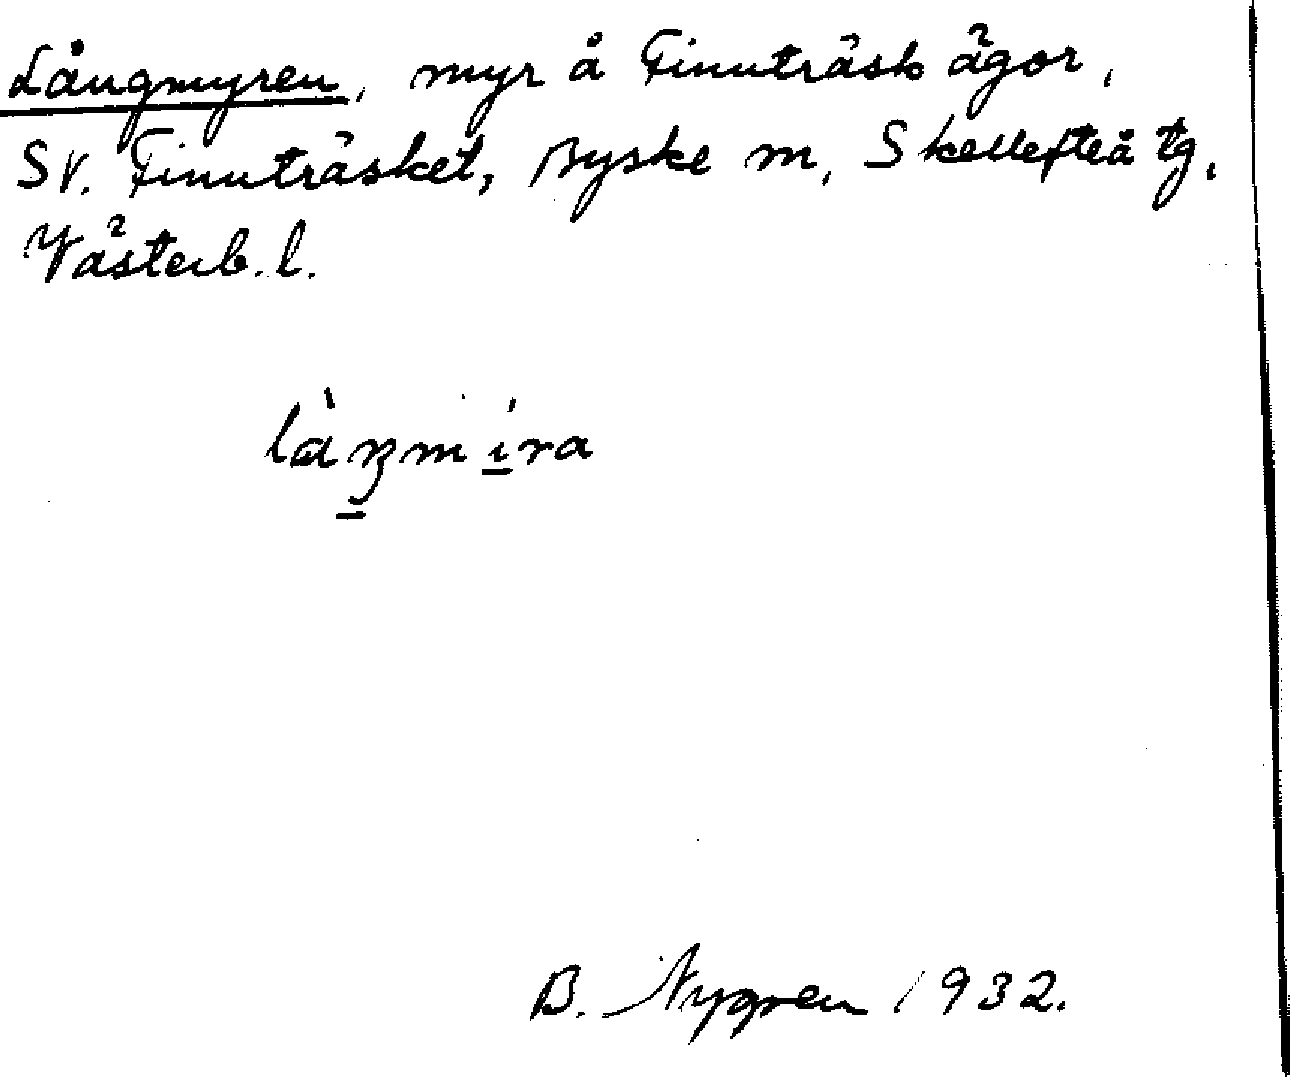 Långmyren, myr å Finnträsk ägor,
SV. Finnträsket, Byske m, Skellefteå tg,
Västerb. l.
B. Nygren 1932.